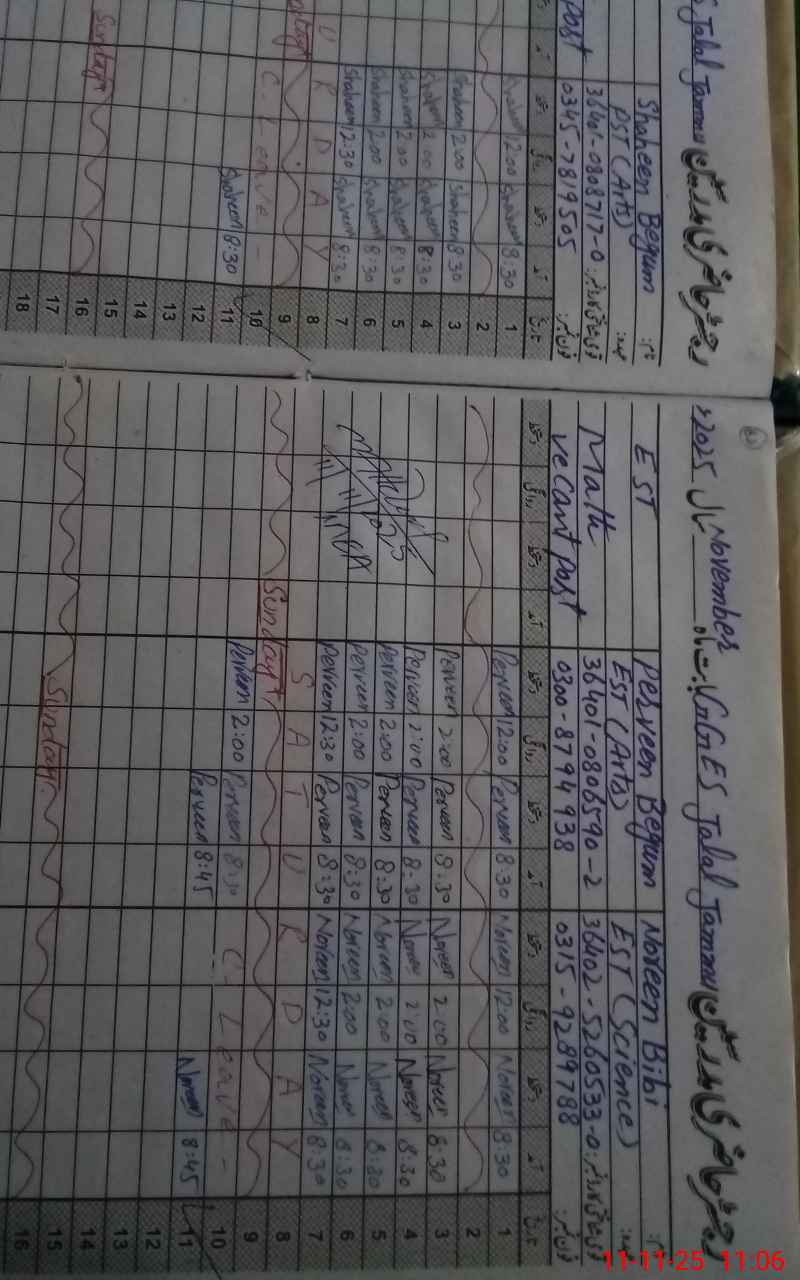 GGES Jalal Jammu رجسٹر حاضری مدرسین
Shaheen Begum
PST (Arts)
36401-0808717-0
0345-7819505
Post
1 Shaheen 12:00 Shaheen 8:30
2
3 Shaheen 2:00 Shaheen 8:30
4 Shaheen 2:00 Shaheen 8:30
5 Shaheen 2:00 Shaheen 8:30
6 Shaheen 2:00 Shaheen 8:30
7 Shaheen 12:30 Shaheen 8:30
8 U R D A Y
9 Sunday
10 C. Leave -
11 Shaheen 8:30
12
13
14
15
16 Sunday
17
18
رجسٹر حاضری مدرسین GGES Jalal Jammu بابت ماہ November سال 2025ء
نام: Noreen Bibi Perveen Begum EST
عہدہ: EST (Science) EST (Arts)
36402-5260533-0 36401-0806590-2 Math
0315-9289788 0300-8794938 Vecant Post
1 Noreen 8:30 Noreen 12:00 Perveen 8:30 Perveen 12:00
2
3 Noreen 8:30 Noreen 2:00 Perveen 8:30 Perveen 2:00
4 Noreen 8:30 Noreen 2:00 Perveen 8:30 Perveen 2:00
5 Noreen 8:30 Noreen 2:00 Perveen 8:30 Perveen 2:00
6 Noreen 8:30 Noreen 2:00 Perveen 8:30 Perveen 2:00
7 Noreen 8:30 Noreen 12:30 Perveen 8:30 Perveen 12:30
8 S A T U R D A Y
9 Sunday
10 C. Leave - Perveen 8:30 Perveen 2:00
11 Noreen 8:45 Perveen 8:45
12
13
14
15
16 Sunday
11-11-25 11:06